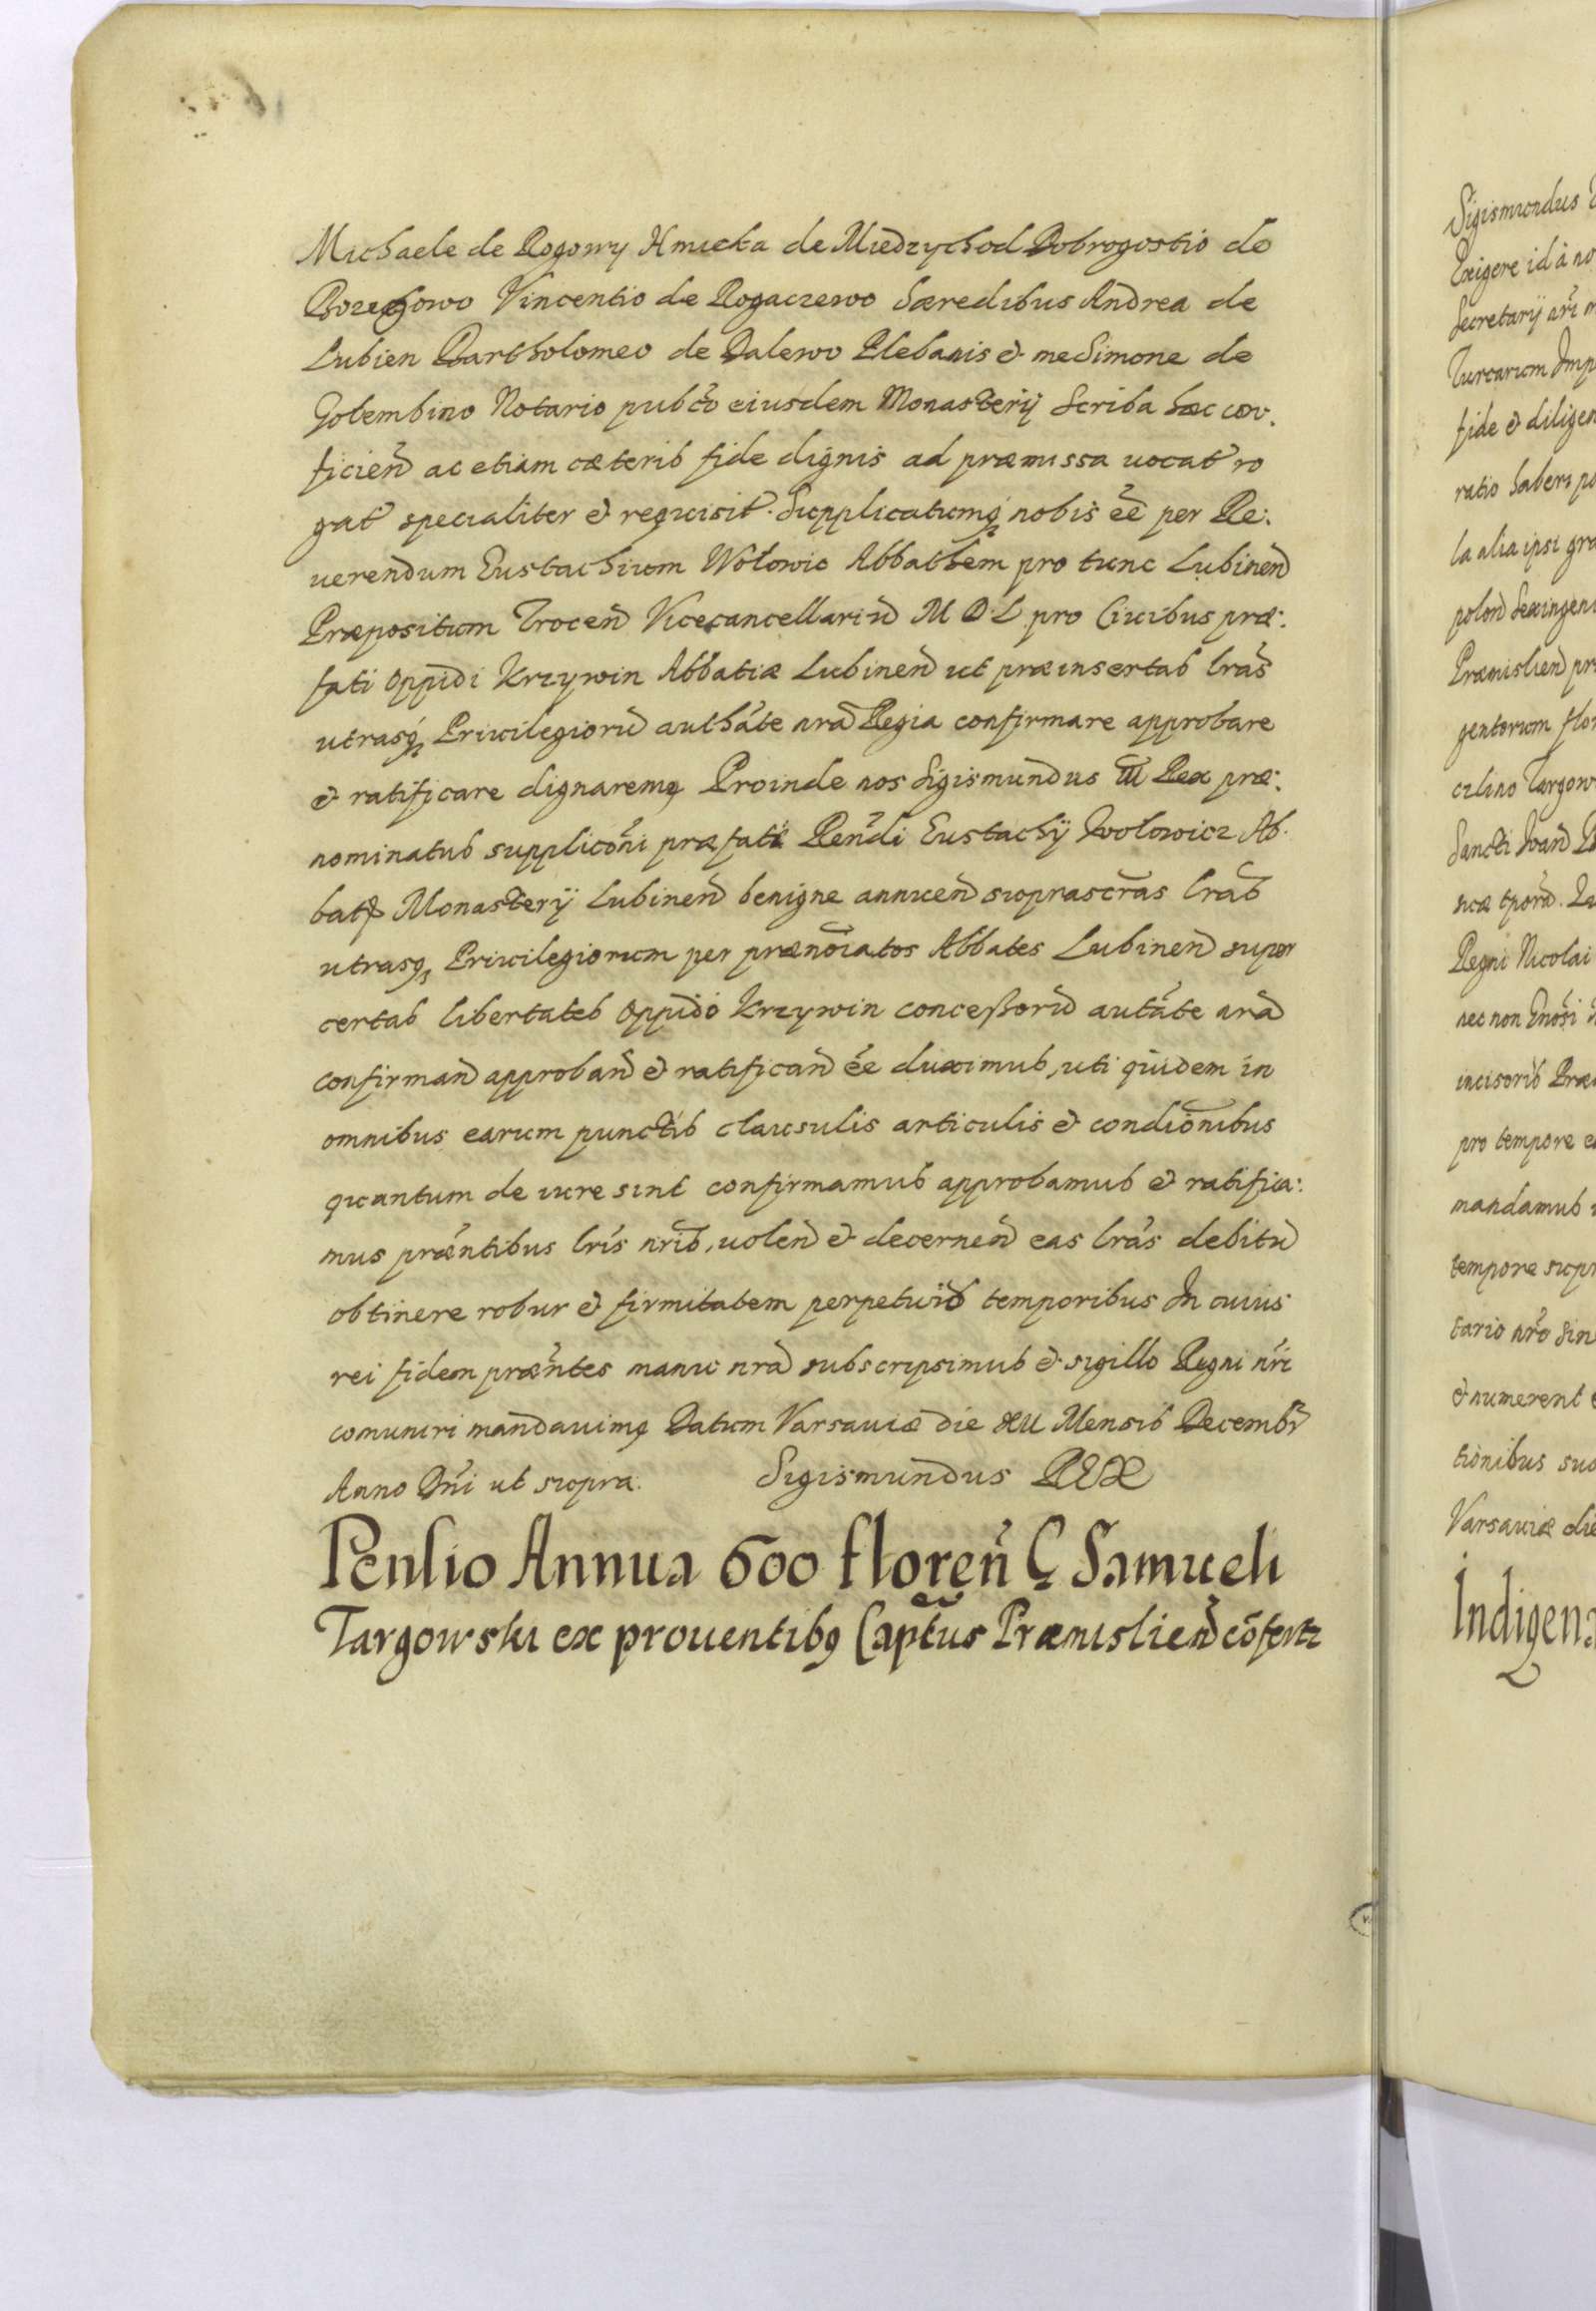 Michaele de Rogowy Hmicka de Miedzychod Dobrogostio de
Bozechowo Vincentio de Rogaczewo hæredibus Andrea de
Lubien Bartholomeo de Dalewo Plebanis & me Simone de
Golembino Notario pubco eiusdem Monasterij Scriba hæc con:
ficien ac etiam cæteris fide dignis ad præmissa uocat ro
gat specialiter & requisit. Supplicatumq nobis ee per Re:
uerendum Eustachium Wołowic Abbathem pro tunc Lubinen
Præpositum Trocen Vicecancellariu M D L pro Ciuibus præ:
fati Oppidi Krzywin Abbatiæ Lubinen ut præinsertas lras
utrasq Priuilegioru authate nra Regia confirmare approbare
& ratificare dignaremq Proinde nos Sigismundus III Rex præ:
nominatus suppliconi præfati Rendi Eustachij Wolowicz Ab:
batis Monasterij Lubinen benigne annuen suprascras lras
utrasq Priuilegiorum per prænoiatos Abbates Lubinen super
certas libertates Oppido Krzywin conceßoru autate nra
confirman approban & ratifican ee duximus, uti quidem in
omnibus earum punctis clausulis articulis & condionibus
quantum de iure sint confirmamus approbamus & ratifica:
mus præntibus lris nris, uolen & decernen eas lras debitu
obtinere robur & firmitatem perpetuis temporibus In cuius
rei fidem præntes manu nra subscripsimus & sigillo Regni nri
comuniri mandauimq Datum Varsauiæ die XII Mensis Decembr
Anno Dni ut supra. Sigismundus REX
Pensio Annua 600 floren G Samueli
Targowski ex prouentibq Captus Præmislien cōfertr
Sigismundus
Exigere id à no
Secretarij nri
Turcarum Imp
fide & diligen
ratio haberi po
la alia ipsi gra
polon Sexingen
Præmislien pr
gentorum flor
czlino Targow
Sancti
suæ tpora.
Regni Nicolai
nec non Gnosi
incisoris Præ
pro tempore e
mandamus
tempore supr
tario nro Sin
& numerent
tionibus suo
Varsauiæ die
Indigena